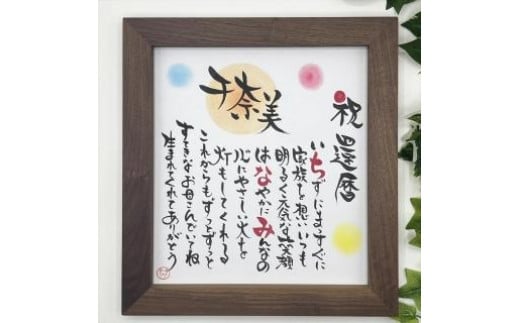 祝 還暦
千奈美
いちずにまっすぐに
家族を想いいつも
明るく元気な笑顔
はなやかにみんなの
心にやさしい火を
灯もしてくれる
これからもずっとずっと
すてきなお母さんでいてね
生まれてくれてありがとう